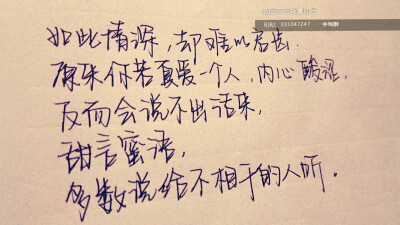 如此情深,却难以启齿.
原来你若真爱一个人,内心酸涩,
反而会说不出话来,
甜言蜜语,
多数说给不相干的人听.